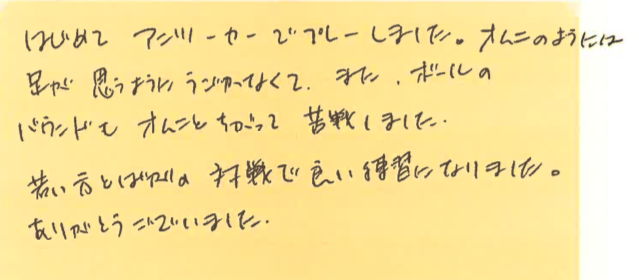 はじめて アンツーカーでプレーしました。オムニのようには
足が 思うように うごかなくて、また、ボールの
バウンドも オムニとちがって 苦戦しました.
若い方とばかりの 対戦で良い練習になりました。
ありがとうございました.